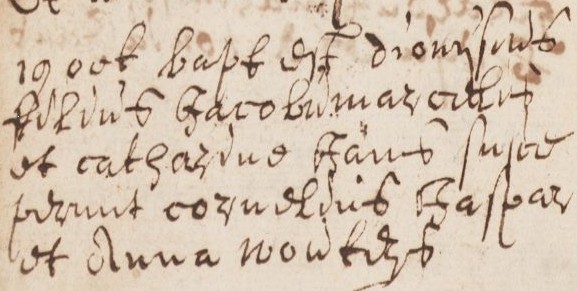 19 oct bapt est dionysius
filius Jacobi marcelis
et catharine Jans susce
perunt cornelius Jaspar
et Anna wouters